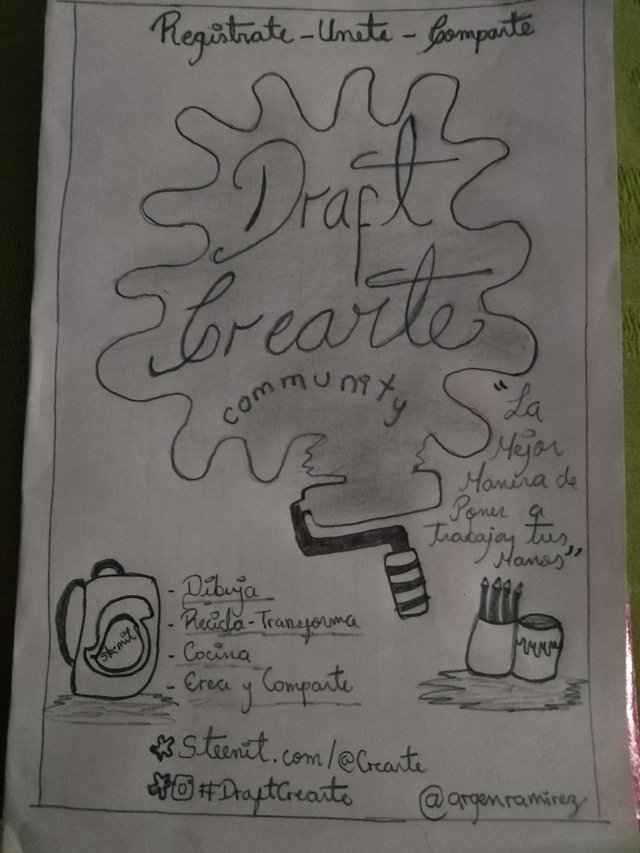 Registrate - Unete - Comparte
Draft
Crearte
community
"La
Mejor
Manera de
Poner a
trabajar tus
Manos"
Steemit
- Dibuja
- Recicla - Transforma
- Cocina
- Crea y Comparte
Steemit.com/@Crearte
#DraftCrearte
@argenramirez